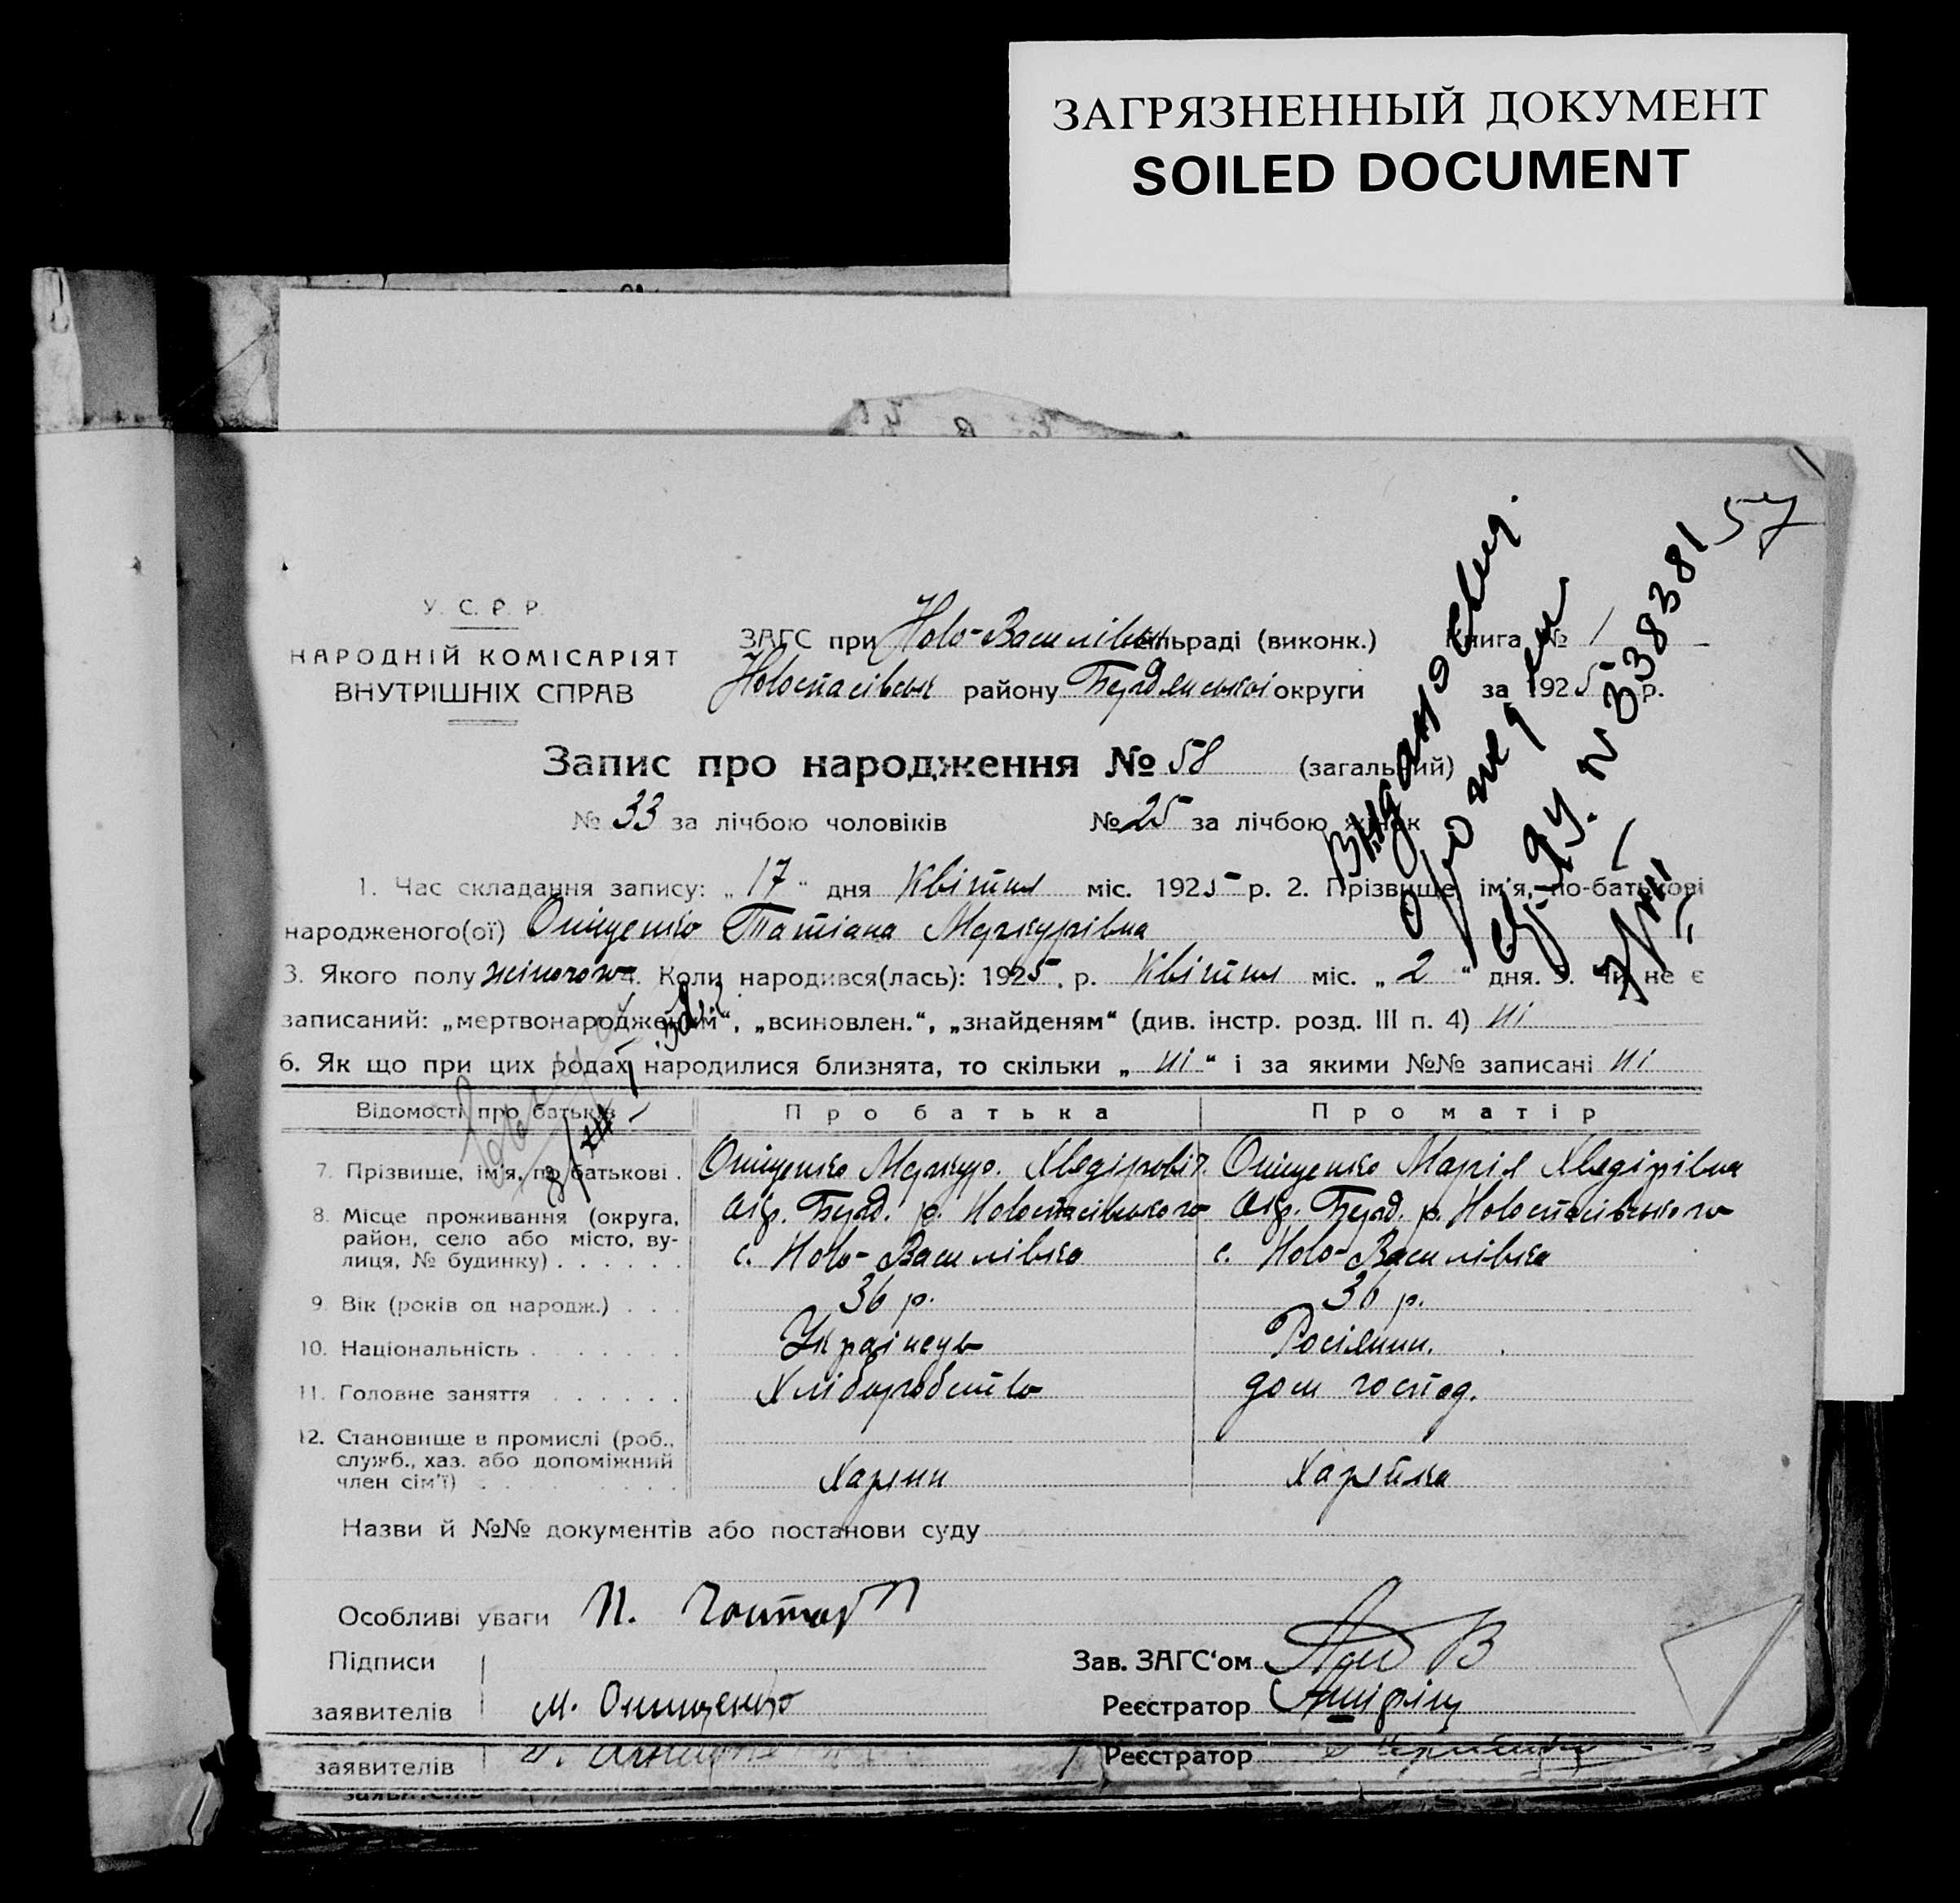 ЗАГРЯЗНЕННЫЙ ДОКУМЕНТ
SOILED DOCUMENT
57
У. С. Р. Р.
НАРОДНІЙ КОМІСАРІЯТ
ВНУТРІШНІХ СПРАВ
ЗАГС при Ново-Василівськ сільраді (виконк.) Книга № 1
Новоспасівськ району Бердянської округи за 1925 р.
Запис про народження № 58 (загальний)
№ 33 за лічбою чоловіків № 25 за лічбою жінок
1. Час складання запису: „17“ дня Квітня міс. 1925 р. 2. Прізвище, ім'я, по-батькові
народженого(ої) Оніщенко Татіана Меркурівна
3. Якого полу жіночого 4. Коли народився(лась): 1925 р. Квітня міс. „2“ дня. 5. Чи не є
записаний: „мертвонародженим“, „всиновлен.“, „знайденям“ (див. інстр. розд. III п. 4) ні
6. Як що при цих родах народилися близнята, то скільки „ні“ і за якими №№ записані ні
Відомості про батьків Про батька Про матір
7. Прізвище, ім'я, по батькові . Оніщенко Меркур. Хведірович. Оніщенко Марія Хведірівна
8. Місце проживання (округа, район, село або місто, вулиця, № будинку) . . . . . . Окр. Берд. р. Новоспасівського Окр. Берд. р. Новоспасівського
с. Ново-Василівка с. Ново-Василівка
9. Вік (років од народж.) . . . 36 р. 36 р.
10. Національність . . . . . . . Українець Росіянин.
11. Головне заняття . . . . . . Хліборобство дом господ.
12. Становище в промислі (роб., служб., хаз. або допоміжний член сім'ї) . . . . . . . . . Хазяин Хазяйка
Назви й №№ документів або постанови суду
Особливі уваги
Підписи Зав. ЗАГС‘ом
заявителів М. Онищенко Реєстратор
заявителів Реєстратор
заявителів
Видано свид.
о рожден
N 338381